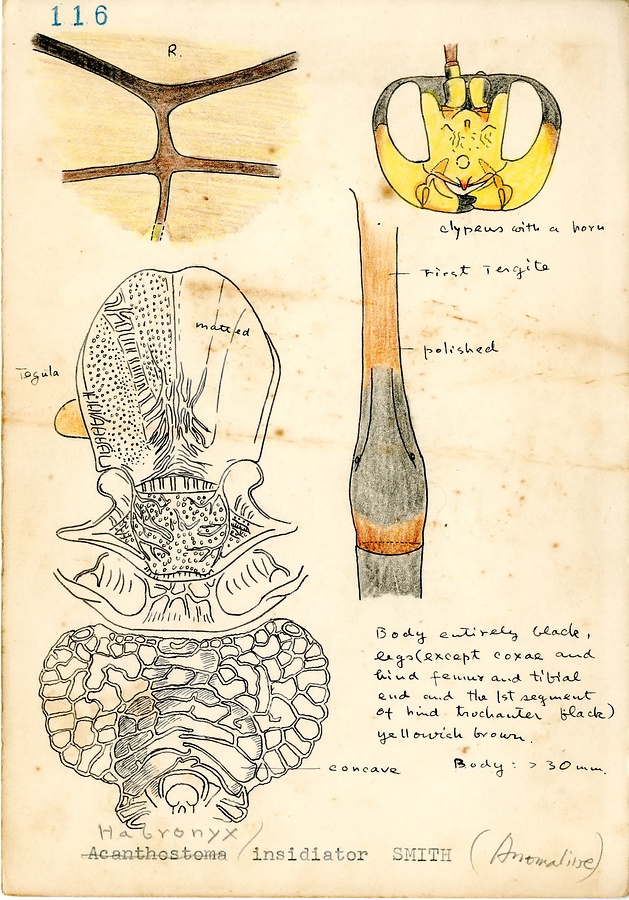 116
R.
clypeus with a horn
First Tergite
matted
polished
Tegula
Body entirely black,
legs (except coxae and
hind femur and tibial
end and the 1st segment
of hind trochanter black)
yellowish brown.
Body: > 30 mm.
concave
Habronyx
Acanthostoma / insidiator SMITH (Anomaliinae)